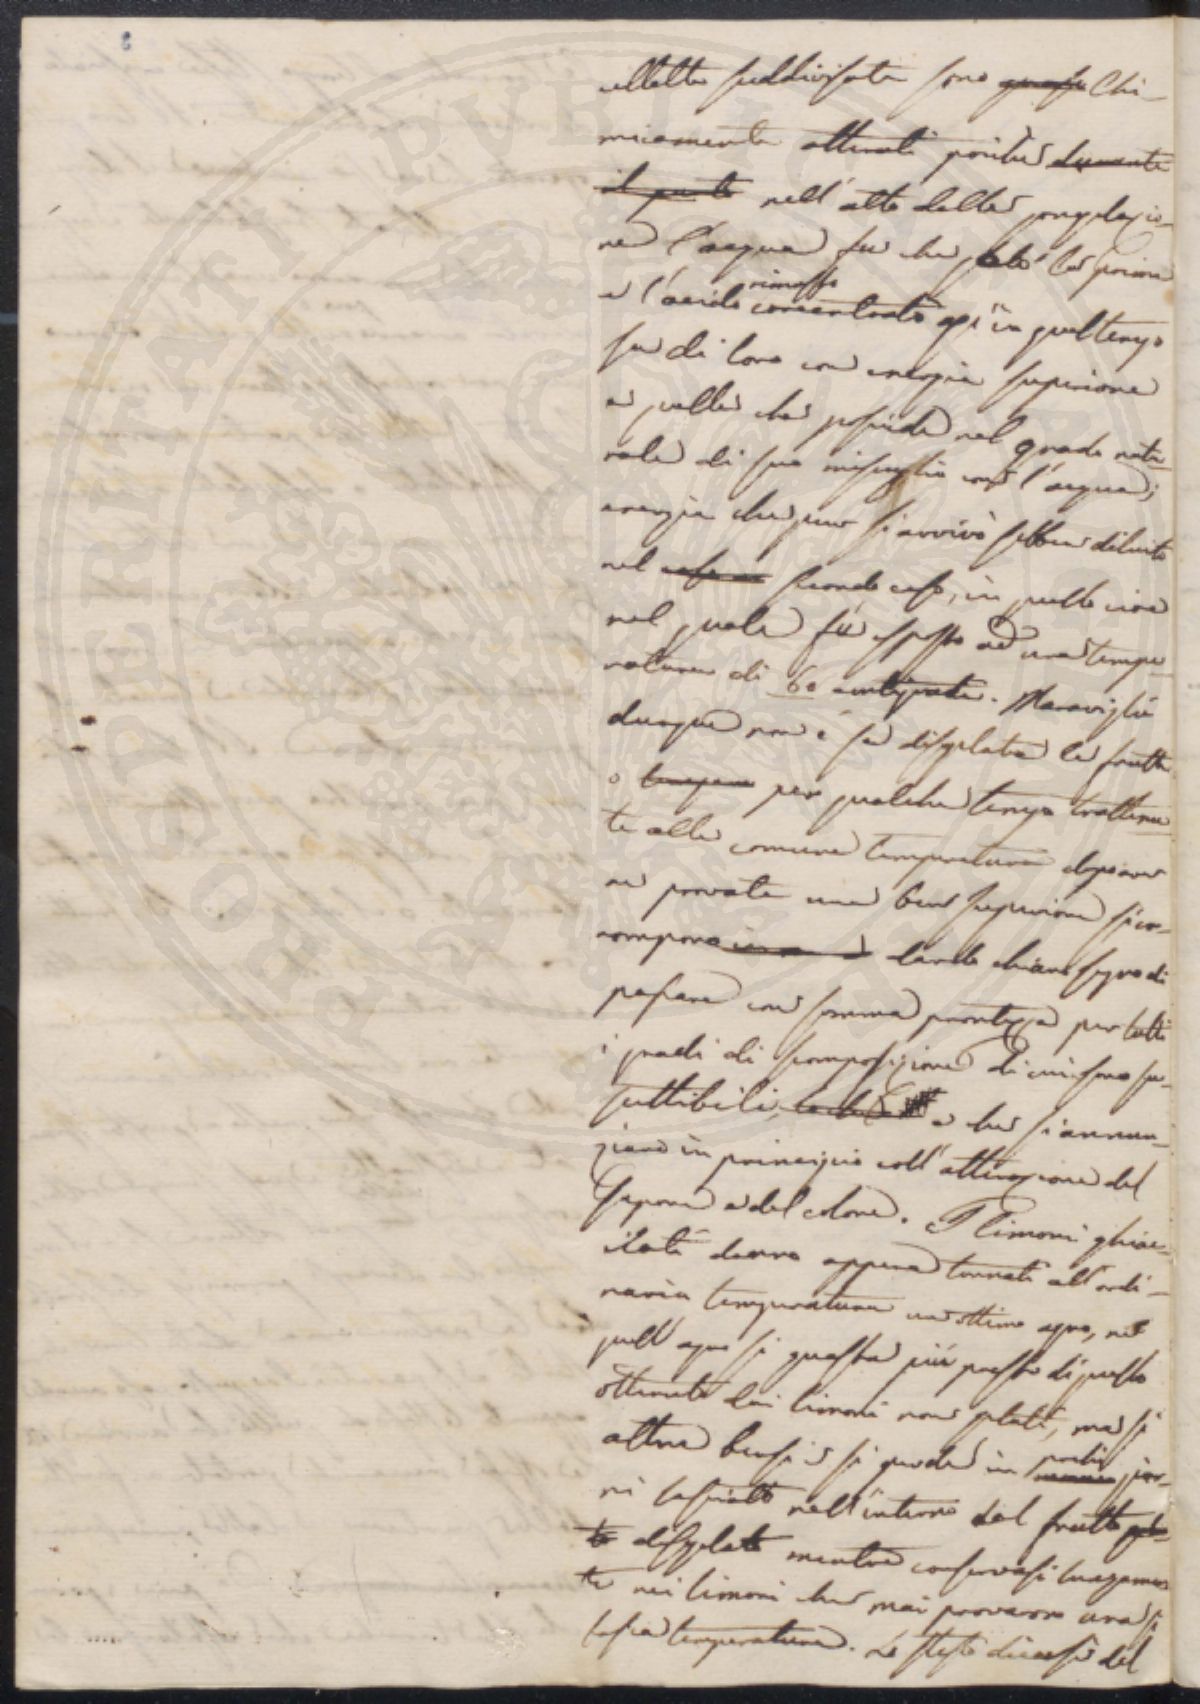 cellette suddivisate sono quasi Chi-
micamente alterati poiché durante
il quale nell'atto della congelazio-
ne l'acqua fu che gelò la prima
rimasto
e l'acido concentrato agì in quel tempo
su di loro con energia superiore
a quella che possiede nel grado natu-
rale di suo miscuglio coll'acqua;
energia che pur si avvivò sebben diluito
nel caso secondo caso, in quello cioè
nel quale fù esposto ad una tempe-
ratura di 60 centigradi. Maraviglia
dunque non è se disgelate le frutta
o per qualche tempo trattenu-
te alla comune temperatura dopo aver-
ne provata una ben superiore si cor-
rompono dando chiaro segno di
passare con somma prontezza per tutti
i gradi di scomposizione di cui sono su-
scettibili, e che si annun-
ziano in principio coll'alterazione del
sapore e del colore. I limoni ghiac-
ciati danno appena tornati all'ordi-
naria temperatura un ottimo agro, nè
quell'agro si guasta più presto di quello
ottenuto dai limoni non gelati, ma si
altera bensì e si perde in pochi gior-
ni lasciato nell'interno del frutto gela-
to disgelato mentre conservasi lungamen-
te nei limoni che mai provarono una sì
bassa temperatura. Lo stesso dicasi del